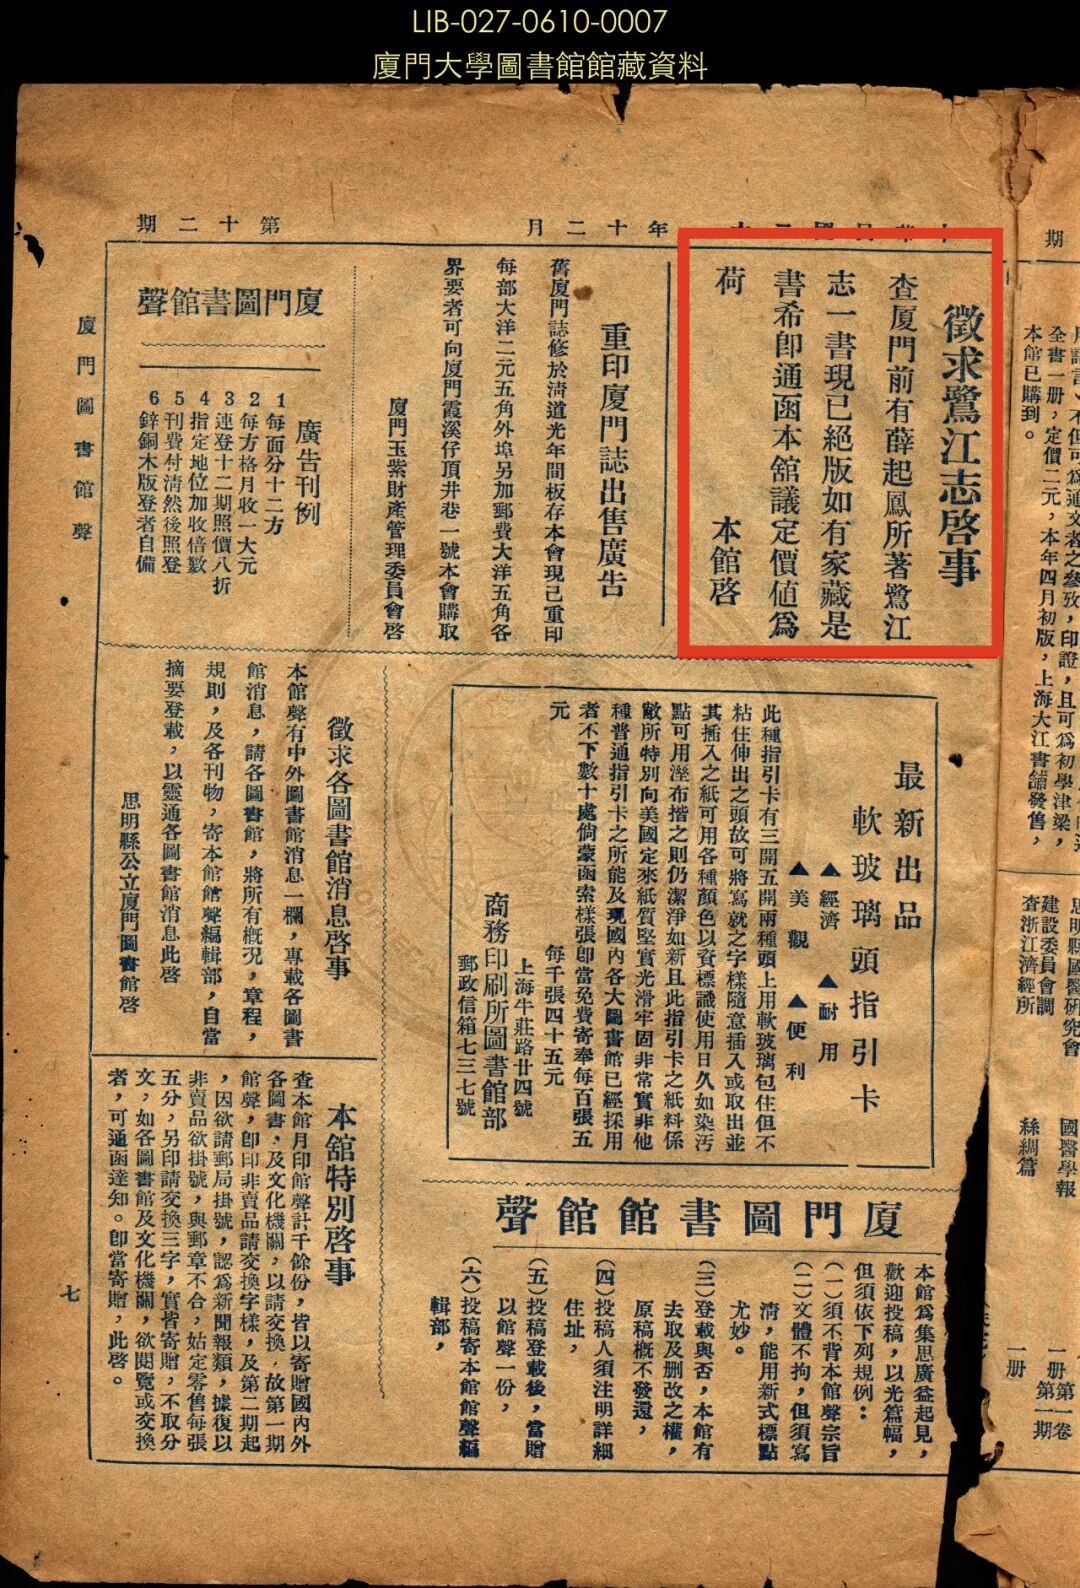 LIB-027-0610-0007
廈門大學圖書館館藏資料
年十二月
第十二期
徵求鷺江志啓事
查厦門前有薛起鳳所著鷺江
志一書現已絕版如有家藏是
書希卽通函本舘議定價値爲
荷
本館啓
重印廈門誌出售廣告
舊厦門誌修於淸道光年間板存本會現已重印
每部大洋二元五角外埠另加郵費大洋五角各
界要者可向廈門霞溪仔頂井巷一號本會購取
廈門玉紫財產管理委員會啓
廈門圖書館聲
廣告刊例
1 每面分十二方
2 每方格月收一大元
3 連登十二期照價八折
4 指定地位加收倍數
5 刊費付淸然後照登
6 鋅銅木版登者自備
最新出品
軟玻璃頭指引卡
▲經濟 ▲耐用
▲美觀 ▲便利
此種指引卡有三開五開兩種頭上用軟玻璃包住但不
粘住伸出之頭故可將寫就之字樣隨意插入或取出並
其插入之紙可用各種顏色以資標識使用日久如染汚
點可用溼布揩之則仍潔淨如新且此指引卡之紙料係
敝所特別向美國定來紙質堅實光滑牢固非常實非他
種普通指引卡之所能及現國內各大圖書館已經採用
者不下數十處倘蒙函索樣張卽當免費寄奉每百張五
元
每千張四十五元
上海牛莊路廿四號
商務印刷所圖書館部
郵政信箱七三七號
徵求各圖書館消息啓事
本館聲有中外圖書館消息一欄，專載各圖書
館消息，請各圖書館，將所有槪况，章程，
規則，及各刊物，寄本館館聲編輯部，自當
摘要登載，以靈通各圖書館消息此啓
思明縣公立廈門圖書館啓
廈門圖書館館聲
本館爲集思廣益起見，
歡迎投稿，以光篇幅，
但須依下列規例：
（一）須不背本館聲宗旨
（二）文體不拘，但須寫
淸，能用新式標點
尤妙。
（三）登載與否，本館有
去取及刪改之權，
原稿槪不發還，
（四）投稿人須注明詳細
住址，
（五）投稿登載後，當贈
以館聲一份，
（六）投稿寄本館館聲編
輯部，
本舘特別啓事
查本館月印館聲計千餘份，皆以寄贈國內外
各圖書，及文化機關，以請交換，故第一期
館聲，卽印非賣品請交換字樣，及第二期起
，因欲請郵局掛號，認爲新聞報類，據復以
非賣品欲掛號，與郵章不合，姑定零售每張
五分，另印請交換三字，實皆寄贈，不取分
文，如各圖書館及文化機關，欲閱覽或交換
者，可通函達知。卽當寄贈，此啓。
廈門圖書館聲
七
期
全書一册，定價二元，本年四月初版，上海大江書舖發售，
本館已購到。
思明縣國醫硏究會
國醫學報
一册第一卷
第一期
建設委員會調
查浙江濟經所
絲綢篇
一册